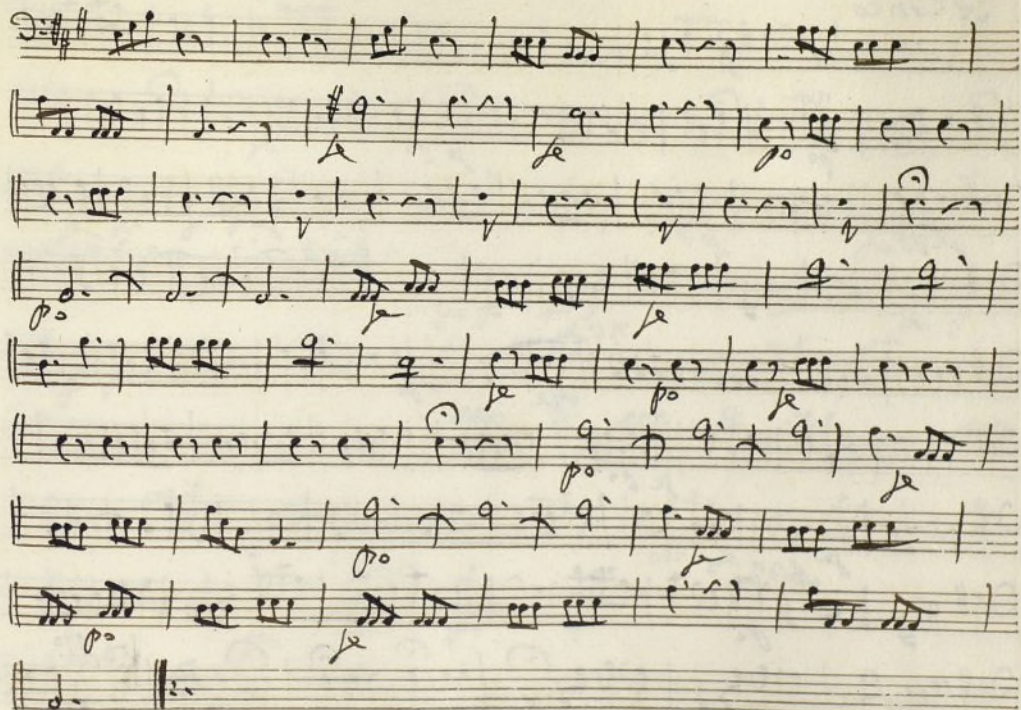 fe fe po
po fe fe
fe po fe
po fe
po fe
po fe